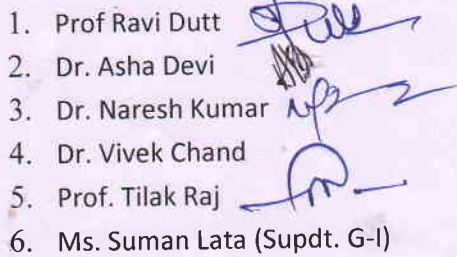 1. Prof Ravi Dutt
2. Dr. Asha Devi
3. Dr. Naresh Kumar
4. Dr. Vivek Chand
5. Prof. Tilak Raj
6. Ms. Suman Lata (Supdt. G-I)